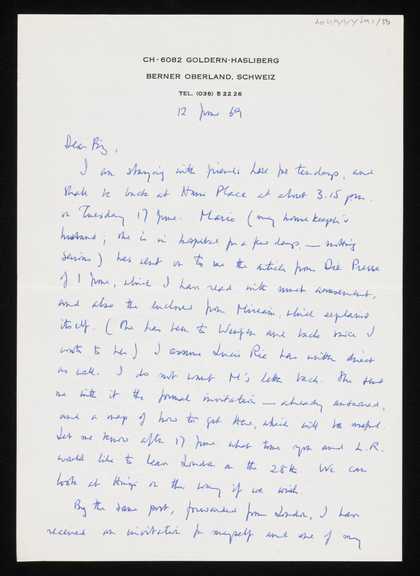 CH-6082 GOLDERN-HASLIBERG
BERNER OBERLAND, SCHWEIZ
TEL. (036) 5 22 26
12 June 69
Dear Priz,
I am staying with friends here for ten days, and
shall be back at Hans Place at about 3.15 pm.
on Tuesday 17 June. Mario (my housekeeper's
husband; she is in hospital for a few days, — nothing
serious) has sent on to me the article from Die Presse
of 1 June, which I have read with much amusement,
and also the enclosed from Miriam, which explains
itself. (She has been to and back since I
wrote to her) I assume Lucie Rie has written direct
as well. I do not want M's letter back. She sent
me with it the formal invitation — already answered,
and a map of how to get there, which will be useful.
Let me know after 17 June what time you and L.R.
would like to leave London on the 28th. We can
look at Kings on the way if we wish.
By the same post, forwarded from London, I have
received an invitation for myself and one of my